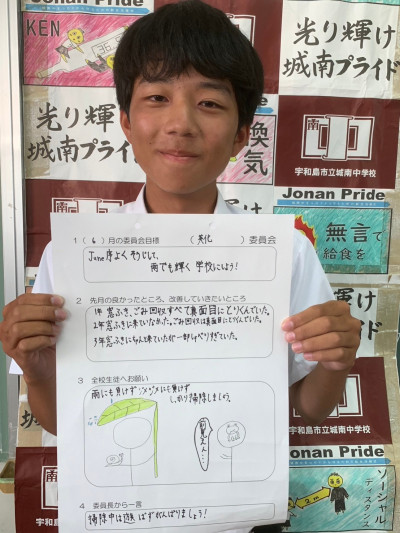 Jonan Pride
Jonan Pride
KEN
光り輝け
城南プライド
光り輝け
城南プライド
換気
南中
宇和島市立城南中学校
Jonan Pride
無言で
給食を
Jonan Pride
ソーシャル
ディスタンス
2m
1 ( 6 ) 月の委員会目標 ( 美化 ) 委員会
June序よくそうじして、
雨でも輝く学校にしよう!
2 先月の良かったところ、改善していきたいところ
1年 窓ふき、ごみ回収すべて真面目にとりくんでいた。
2年 窓ふきに来ていなかった。ごみ回収は真面目にとりくんでいた。
3年 窓ふきにちゃんと来ていたが一部しゃべりすぎていた。
3 全校生徒へお願い
雨にも負けずジメジメにも負けず
しっかり掃除しましょう。
4 委員長から一言
掃除中は遊ばずがんばりましょう!